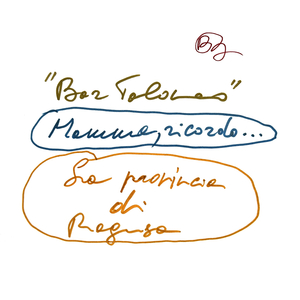 "Bar Tolomeo"
Mamma, ricordo...
La provincia
di
Ragusa